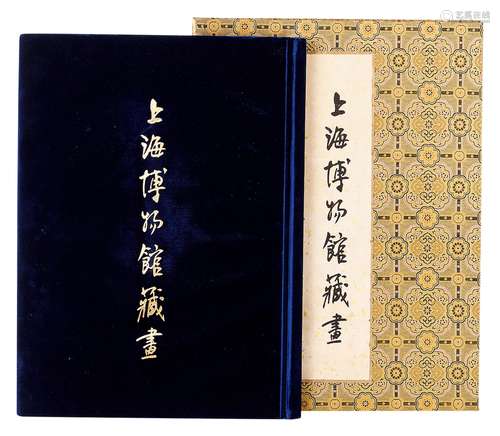 上海博物館藏畫
上海博物館藏畫